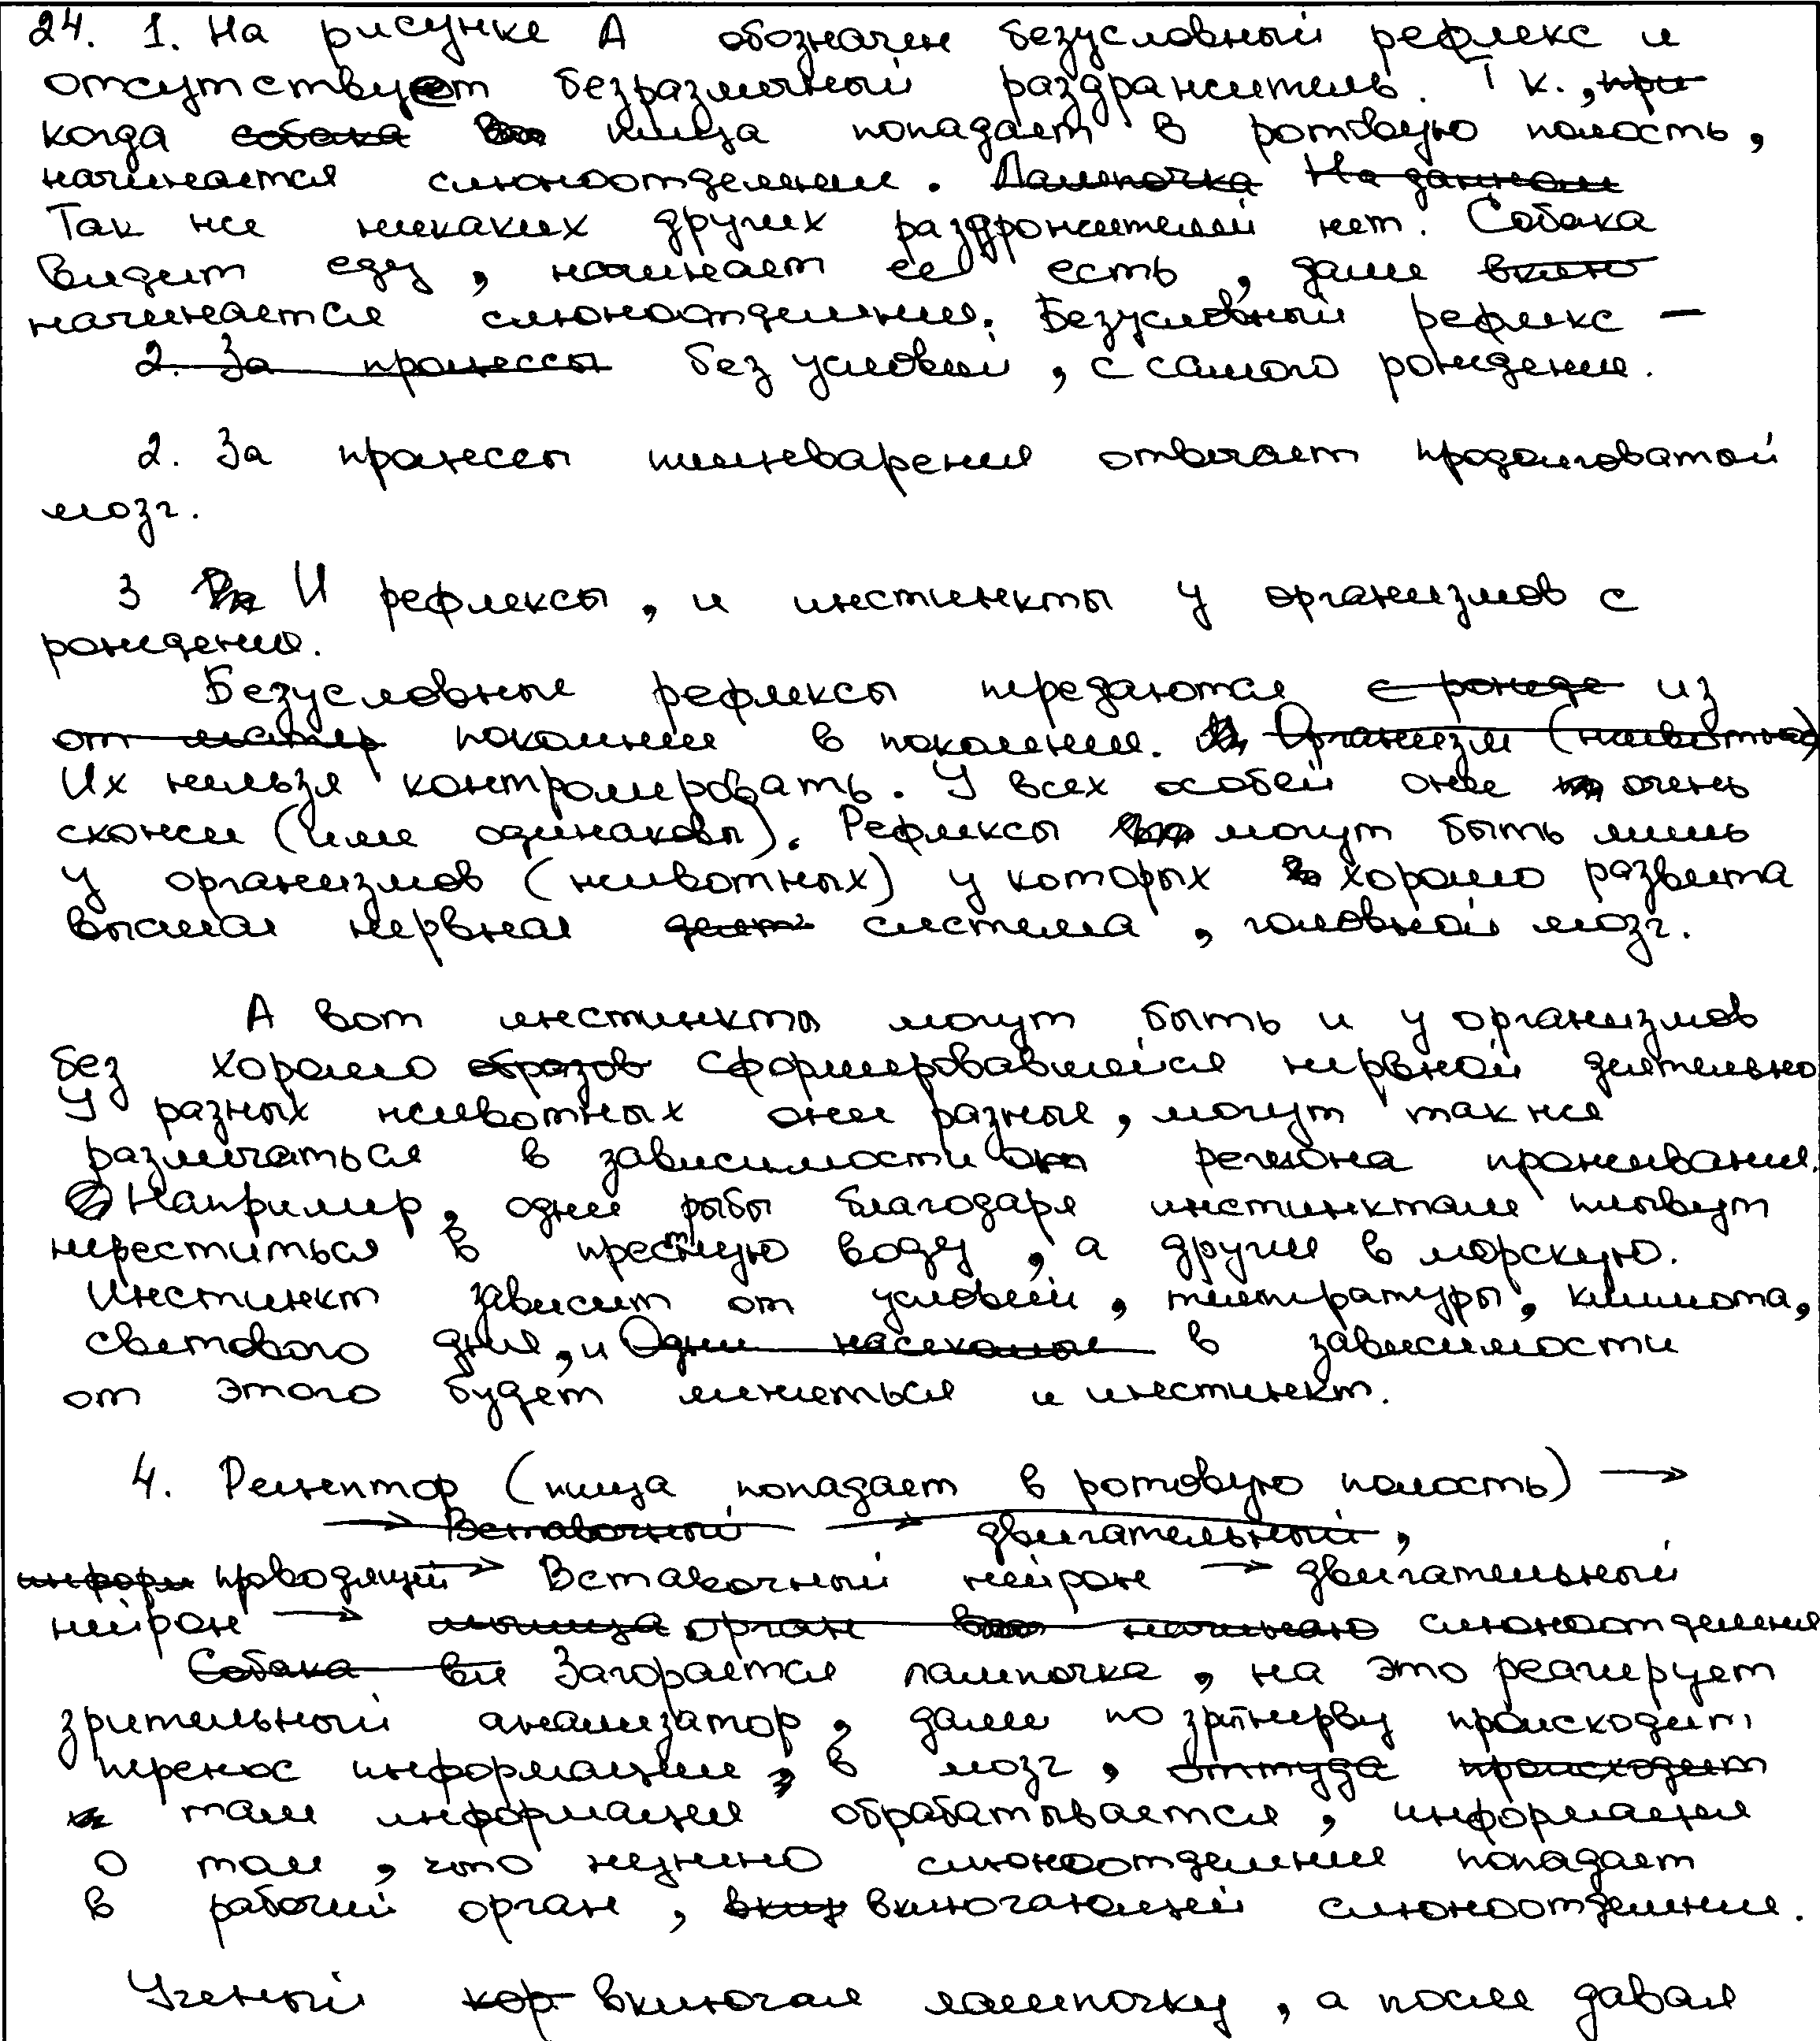 24. 1. На рисунке А обозначен безусловный рефлекс и
отсутствует безразличный раздражитель. Т к., при
когда собака пища попадает в ротовую полость,
начинается слюноотделение. Лампочка На данном
Так же никаких других раздрожителей нет. Собака
видит еду, начинает её есть, далее вклю
начинается слюноотделение. Безусловный рефлекс —
2. За процессы без условий, с самого рождения.
2. За процессы пищеварения отвечает продолговатой
мозг.
3 И рефлексы, и инстинкты у организмов с
рождения.
Безусловные рефлексы передаются с рожде из
от матер поколения в поколение. Организм (животное)
Их нельзя контролировать. У всех особей они очень
схожи (или одинаковы). Рефлексы могут быть лишь
у организмов (животных) у которых хорошо развита
высшая нервная деят система, головной мозг.
А вот инстинкты могут быть и у организмов
без хорошо образов сформировавшейся нервной деятельно
У разных животных они разные, могут так же
различаться в зависимости от региона проживания.
Например, одни рыбы благодаря инстинктам плывут
нереститься в престную воду, а другие в морскую.
Инстинкт зависит от условий, температуры, климота,
светового дня, и Одни насекомые в зависимости
от этого будет меняться и инстинкт.
4. Рецептор (пища попадает в ротовую полость) →
→ Вставочный → двигательный,
информ проводящий → Вставочный нейрон → двигательный
нейрон → мышца орган начинаю слюноотделения
Собака ви Загорается лампочка, на это реагирует
зрительный анализатор, далее по зрит нерву происходит
перенос информации, в мозг, оттуда происходит
там информация обрабатывается, информация
о том, что нужно слюноотделение попадает
в рабочий орган, включающей слюноотделение.
Ученый кор включал лампочку, а после давал